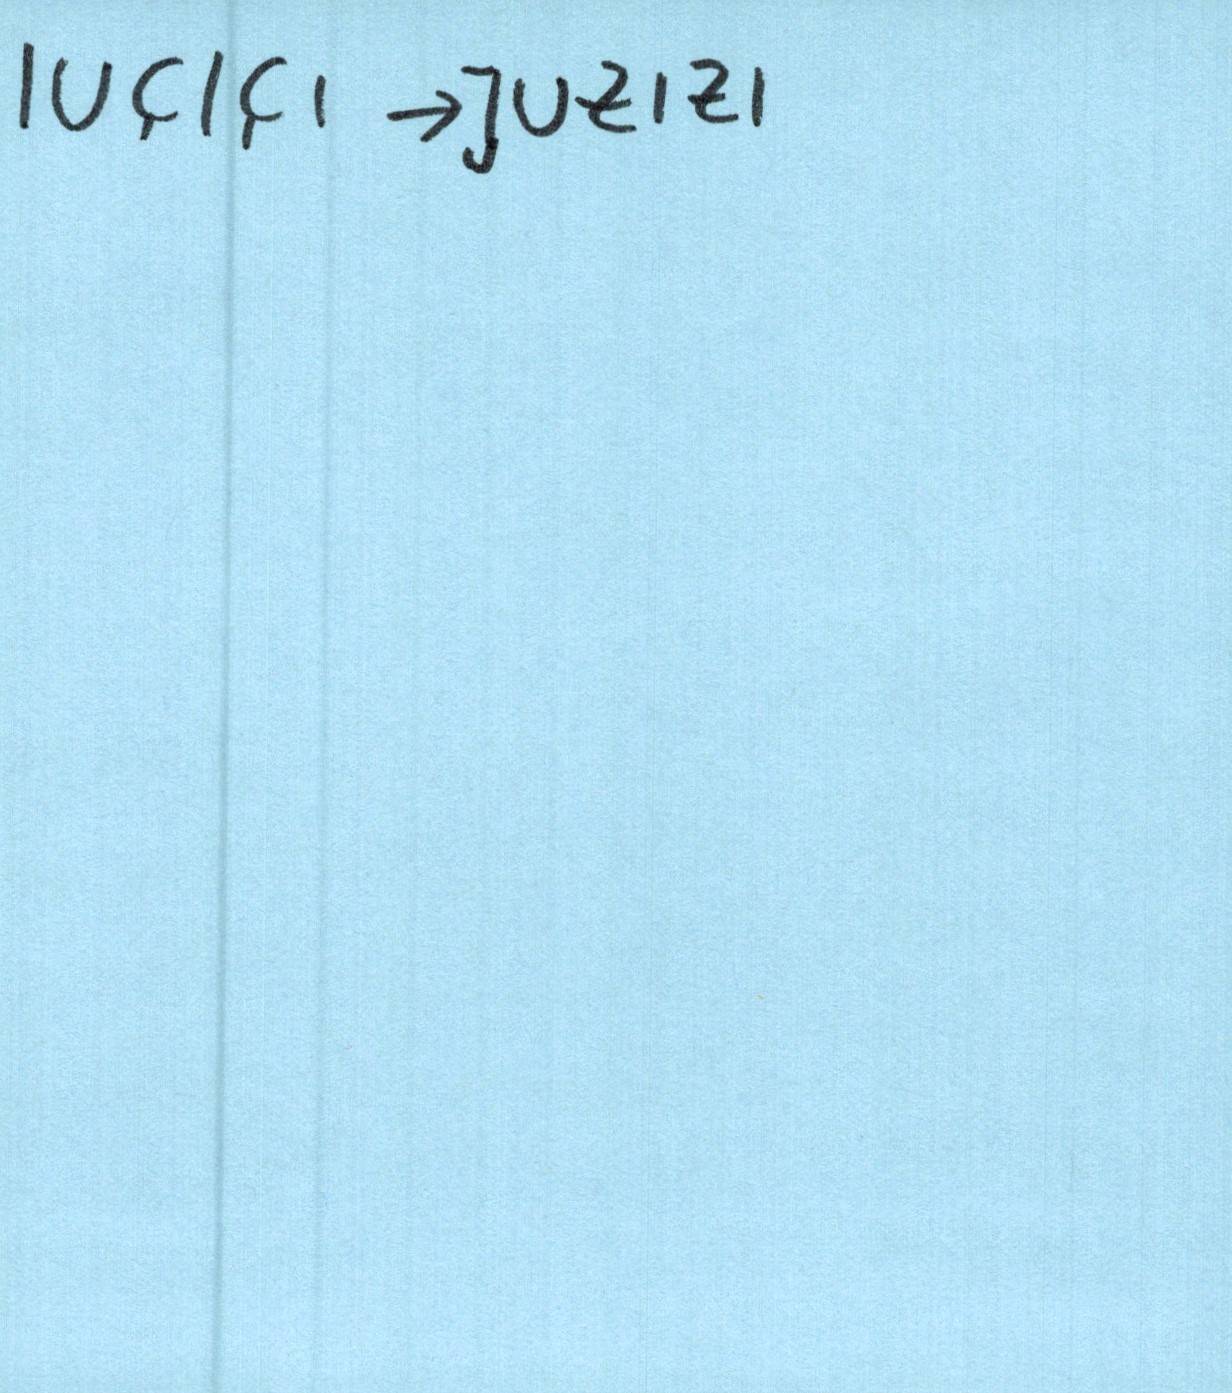 IUÇIÇI → JUZIZI